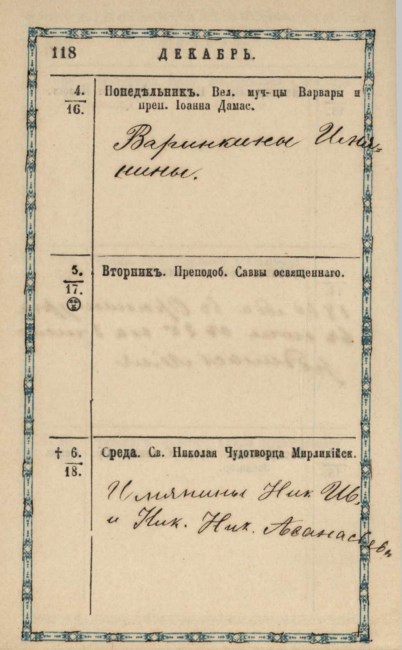 118 ДЕКАБРЬ.
4. Понедѣльникъ. Вел. муч-цы Варвары и
16. преп. Іоанна Дамас.
Варинкины Имя-
нины.
5. Вторникъ. Преподоб. Саввы освященнаго.
17.
† 6. Среда. Св. Николая Чудотворца Мирликійск.
18.
Имянины Ник Ив.
и Ник. Ник. Аѳанасьевы